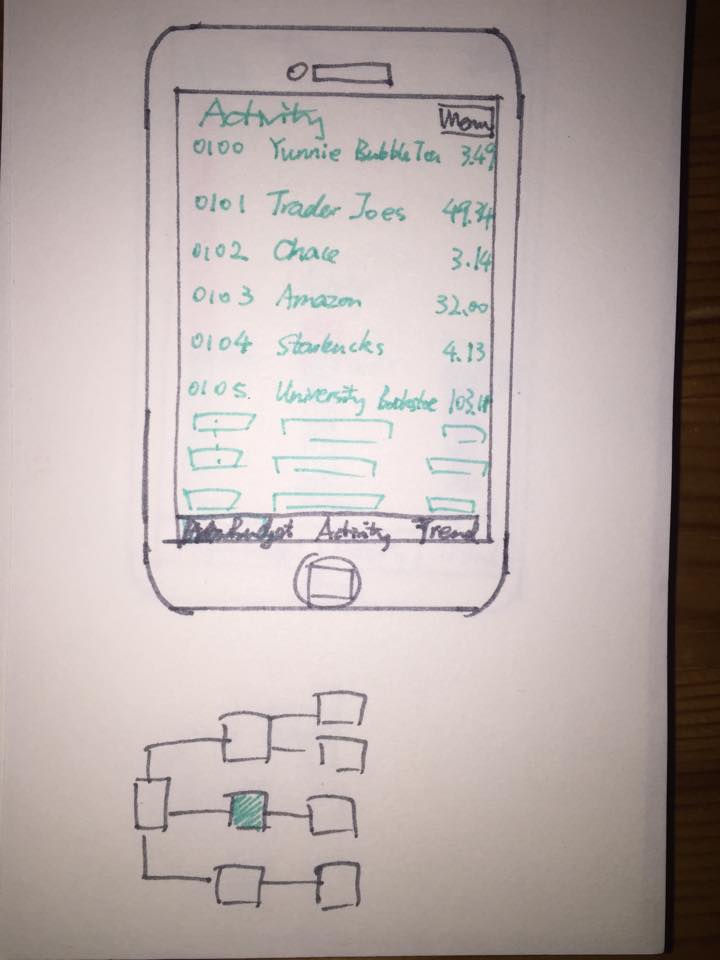 Activity Menu
0100 Yunnie Bubble Tea 3.49
0101 Trader Joes 49.34
0102 Chace 3.14
0103 Amazon 32.00
0104 Starbucks 4.13
0105. University Bookstoe
Budget Activity Trend